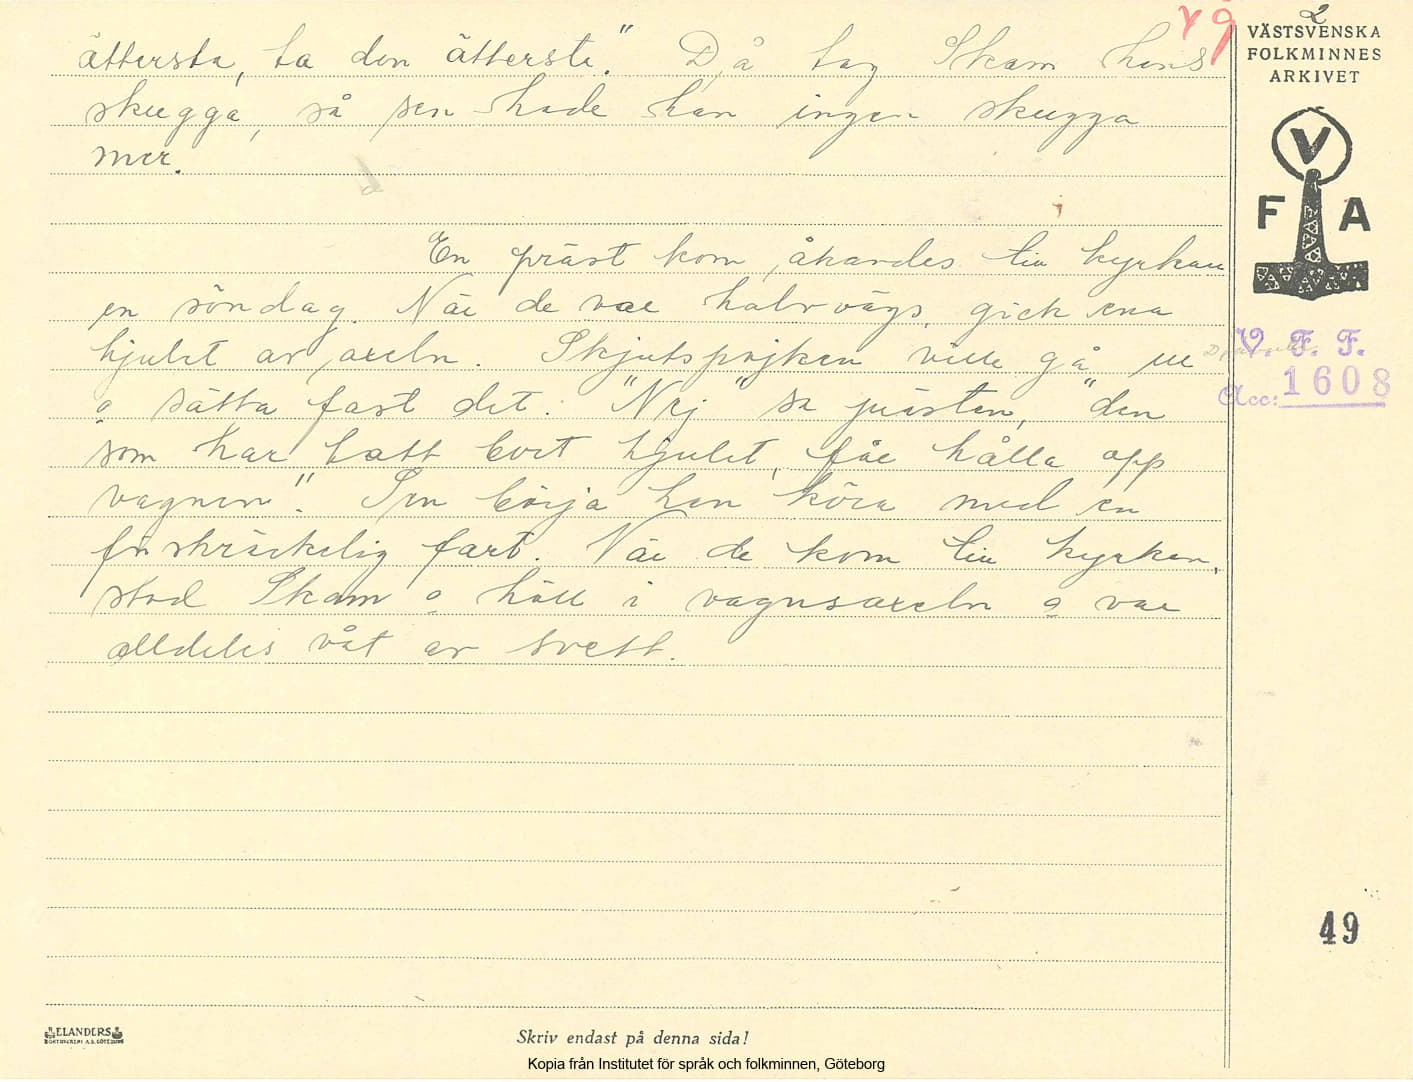 2
vg
VÄSTSVENSKA
FOLKMINNES
ARKIVET
V
F A
V. F. F.
Acc: 1608
ättersta, ta den ättersta." Då tog Skam hans
skugga, så sen hade han ingen skugga
mer.
En präst kom åkandes till kyrkan
en söndag. När de var halvvägs, gick ena
hjulet av axeln. Skjutspojken ville gå ur
o sätta fast det. "Nej" sa prästen, "den
som har tatt bort hjulet, får hålla opp
vagnen". Sen börja han köra med en
förskräckelig fart. När de kom till kyrkan,
stod Skam o höll i vagnsaxeln o var
alldeles våt av svett.
49
ELANDERS
BOKTRYCKERI A.B. GÖTEBORG
Skriv endast på denna sida!
Kopia från Institutet för språk och folkminnen, Göteborg